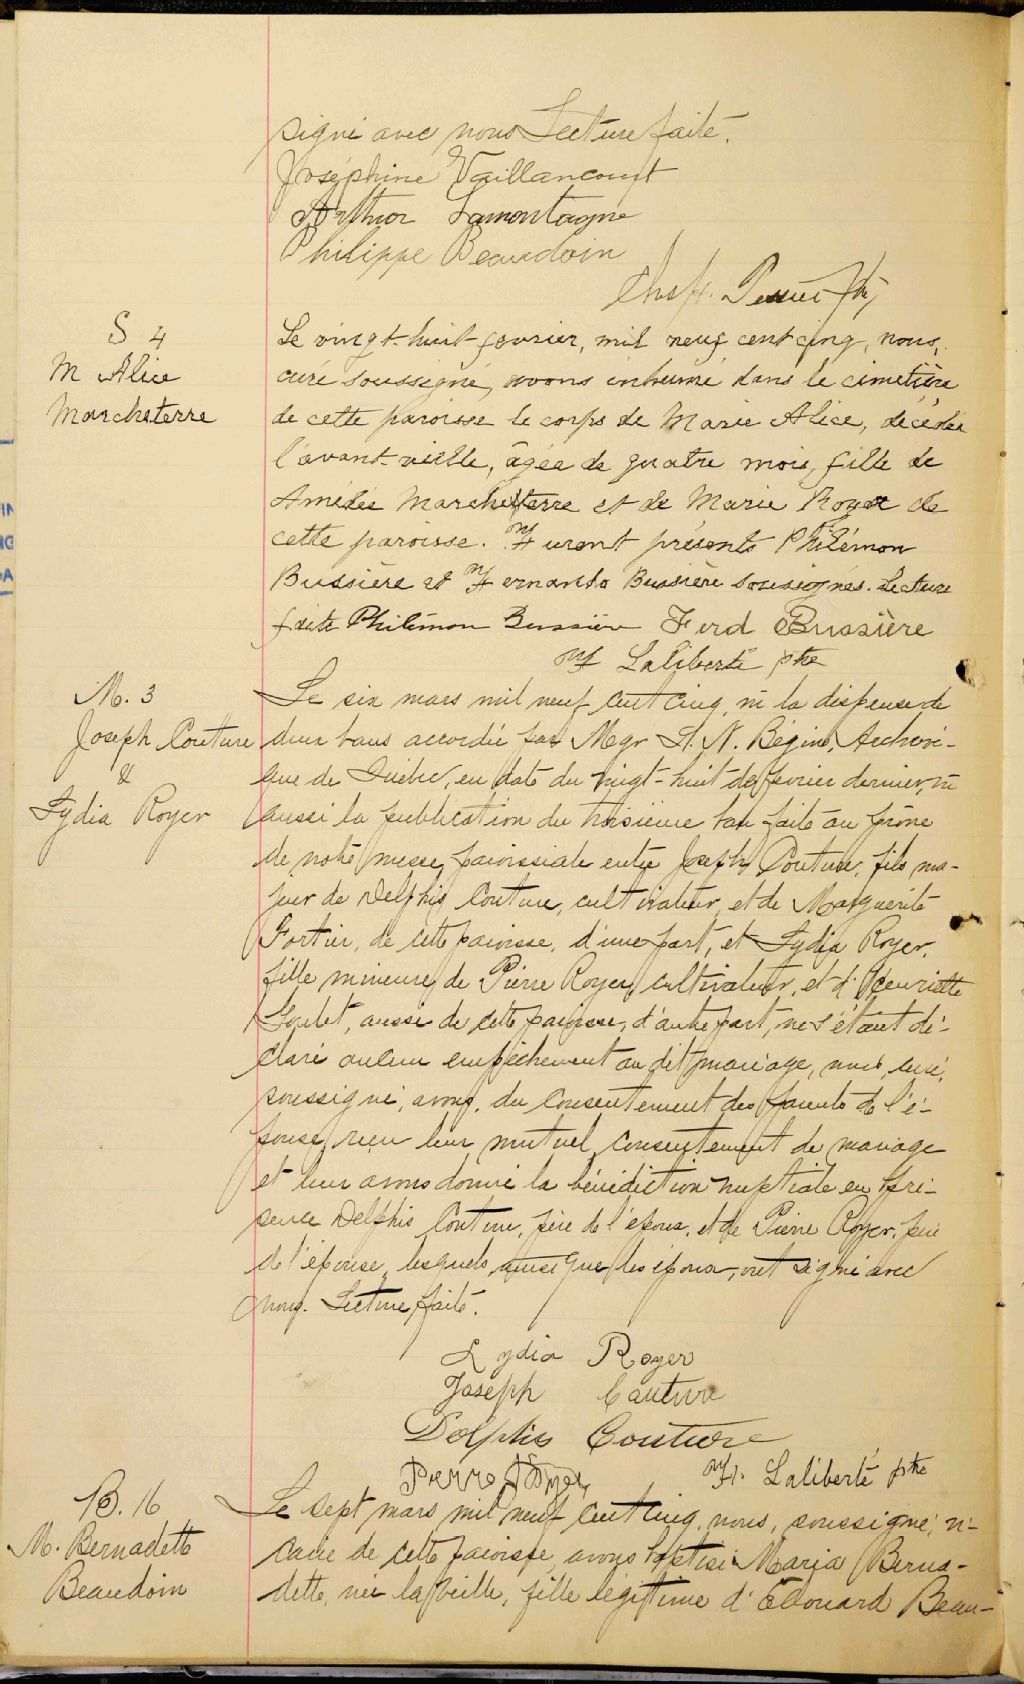 signé avec nous Lecture faite.
Joséphine Vaillancourt
Arthur Lamontagne
Philippe Beaudoin
S 4
M Alice
Marcheterre
Le vingt-huit fevrier, mil neuf cent cinq, nous,
curé soussigné, avons inhumé dans le cimetière
de cette paroisse le corps de Marie Alice, décédée
l'avant-veille, âgée de quatre mois, fille de
Amédée Marcheterre et de Marie Royer de
cette paroisse. Furent présents Philémon
Bussière et Fernando Bussière soussignés. Lecture
faite Philémon Bussière Ferd Bussière
Laliberté ptre
M. 3
Joseph Couture
&
Lydia Royer
Le six mars mil neuf cent cinq, vu la dispense de
deux bans accordée par Mgr L. N. Bégin, Archevê-
que de Québec, en date du vingt-huit de fevrier dernier, vu
aussi la publication du troisième ban faite au prône
de notre messe paroissiale entre Joseph Couture, fils ma-
jeur de Delphis Couture, cultivateur, et de Marguerite
Fortier, de cette paroisse, d'une part, et Lydia Royer,
fille mineure de Pierre Royer, cultivateur, et d'Henriette
Goulet, aussi de cette paroisse, d'autre part, ne s'étant dé-
claré aucun empêchement au dit mariage, nous, curé,
soussigné, avons, du consentement des parents de l'é-
pouse, reçu leur mutuel consentement de mariage
et leur avons donné la bénédiction nuptiale en pré-
sence Delphis Couture, père de l'époux, et de Pierre Royer, père
de l'épouse, lesquels, ainsi que les époux, ont signé avec
nous. Lecture faite.
Lydia Royer
Joseph Couture
Delphis Couture
Pierre Royer
Laliberté ptre
B. 16
M. Bernadette
Beaudoin
Le sept mars mil neuf cent cinq, nous, soussigné, vi-
caire de cette paroisse, avons baptisé Maria Berna-
dette, née la veille, fille légitime d'Edouard Beau-